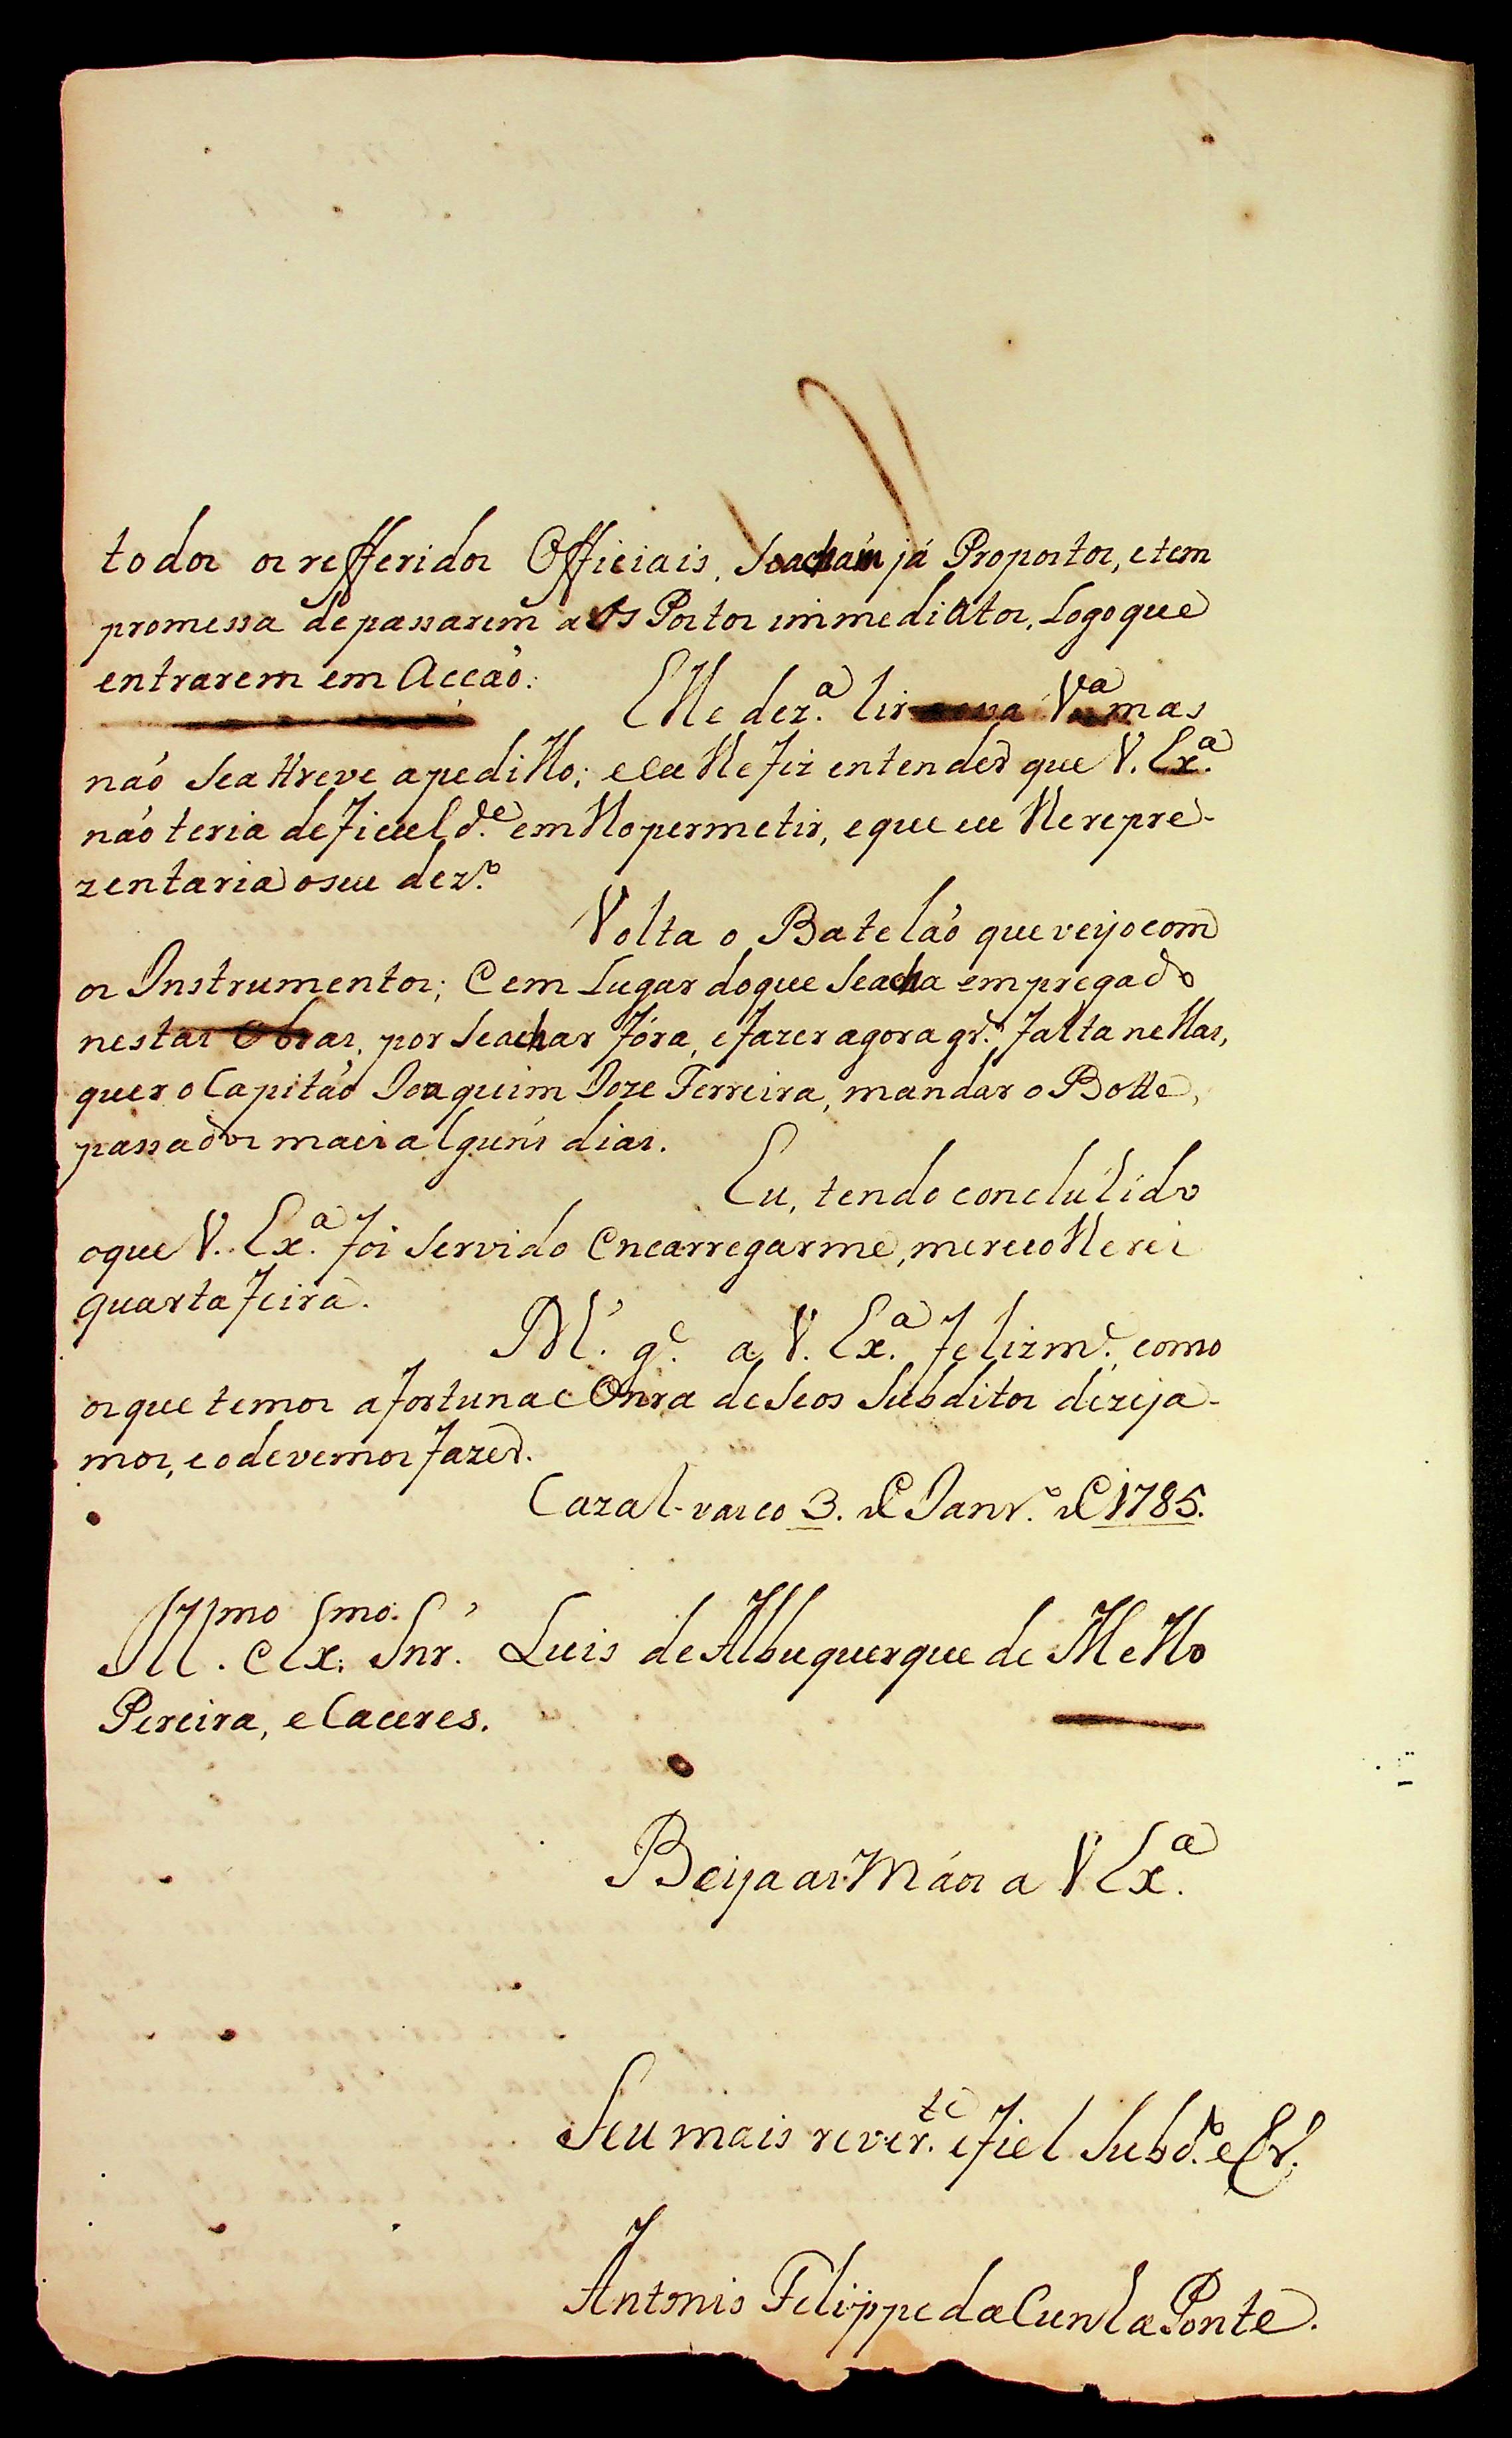 todos os refferidos Officiais, Seachaḿ já Propostos, e tem
promessa de passarem aos Postos immediatos, Logo que
entrarem em Accaó.
Elle dez.ª hir V.ª mas
naó Seatreve apedillo; e eu lhe fiz entender que V. Ex.ª
naó teria deficuld.e em lho permetir, e que eu lhe repre-
zentaria o seu dez.º
Volta o Batelaó que veijo com
os Instrumentos; e em Lugar do que Seacha empregado
nestas Obras, por Seachar fóra, e fazer agora gr.e falta nellas,
quer o Capitaó Joaquim Joze Ferreira, mandar o Botte,
passados mais alguńs dias.
Eu, tendo concluhido
oque V. Ex.ª foi Servido Encarregarme, me recolherei
quarta feira.
N. S.r g.e a V. Ex.ª felizm.e, como
os que temos a fortuna e Onra de Seos Subditos dezeja-
mos, e o devemos fazer.
Cazal-vasco 3. de Janr.º de 1785.
Ill.mo e Ex.mo Snr.' Luis de Albuquerque de Mello
Pereira, e Caceres.
Beija as Máos a V Ex.ª
Seu mais rever.te e fiel Subd.º e Cr.º
Antonio Felippe da Cunha Ponte.